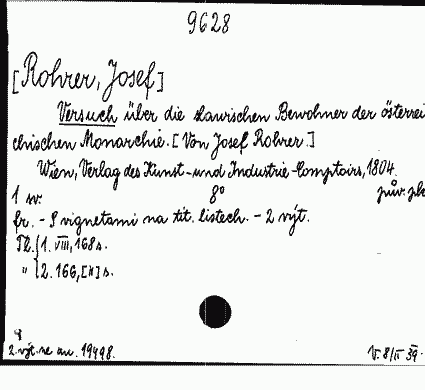 9628
[Rohrer, Josef]
Versuch über die slawischen Bewohner der österrei-
chischen Monarchie. [Von Josef Rohrer.]
Wien, Verlag des Kunst- und Industrie-Comptoirs, 1804.
1 sv. 8° pův. pk
fr. - S vignetami na tit. listech. - 2 výt.
Tl. {1. VIII, 168 s.
" {2. 166, [II] s.
2. výt. ne au. 19498. V. 8/II 39.